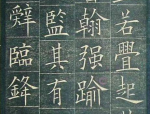 若疊起
翰强踰
監其有
辤臨鋒